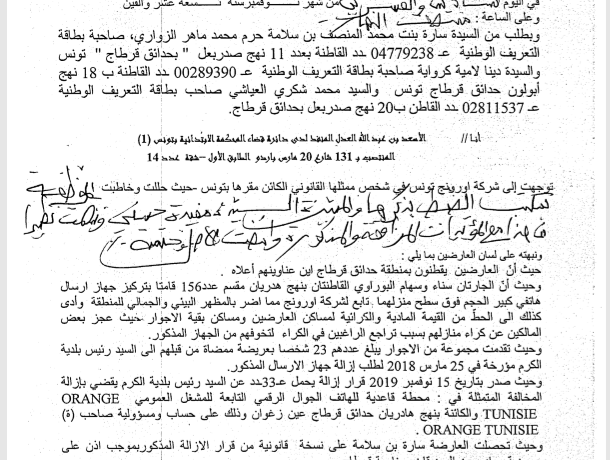 في اليوم السادس والعشرين من شهر نوفمبرسنة تسعة عشر والفين
وعلى الساعة : منتصف النهار
وبطلب من السيدة سارة بنت محمد المنصف بن سلامة حرم محمد ماهر الزواري، صاحبة بطاقة
التعريف الوطنية عـ 04779238 ـدد القاطنة بعدد 11 نهج صدربعل " بحدائق قرطاج " تونس
والسيدة دينا لامية كرواية صاحبة بطاقة التعريف الوطنية عـ 00289390 ـدد القاطنة ب 18 نهج
أبولون حدائق قرطاج تونس والسيد محمد شكري العياشي صاحب بطاقة التعريف الوطنية
عـ 02811537 ـدد القاطن ب20 نهج صدربعل بحدائق قرطاج.
أنا // الأسعد بن عبد الله العدل المنفذ لدى دائرة قضاء المحكمة الابتدائية بتونس (1)
المنتصب بـ 131 شارع 20 مارس باردو الطابق الأول –شقة عدد 14
توجهت إلى شركة اورينج تونس في شخص ممثلها القانوني الكائن مقرها بتونس -حيث حللت وخاطبت
ونبهته على لسان العارضين بما يلي :
حيث أنّ العارضين يقطنون بمنطقة حدائق قرطاج اين عناوينهم أعلاه .
وحيث أنّ الجارتان سناء وسهام البوراوي القاطنتان بنهج هدريان مقسم عدد156 قامتا بتركيز جهاز ارسال
هاتفي كبير الحجم فوق سطح منزلهما تابع لشركة اورونج مما اضر بالمظهر البيئي والجمالي للمنطقة وأدى
كذلك الى الحطّ من القيمة المادية والكرائية لمساكن العارضين ومساكن بقية الاجوار حيث عجز بعض
المالكين عن كراء منازلهم بسبب تراجع الراغبين في الكراء لتخوفهم من الجهاز المذكور.
وحيث تقدمت مجموعة من الاجوار يبلغ عددهم 23 شخصا بعريضة ممضاة من قبلهم الى السيد رئيس بلدية
الكرم مؤرخة في 25 مارس 2018 لطلب إزالة جهاز الارسال المذكور.
وحيث صدر بتاريخ 15 نوفمبر 2019 قرار إزالة يحمل عـ33ـدد عن السيد رئيس بلدية الكرم يقضي بإزالة
المخالفة المتمثلة في : محطة قاعدية للهاتف الجوال الرقمي التابعة للمشغل العمومي ORANGE
TUNISIE والكائنة بنهج هادريان حدائق قرطاج عين زغوان وذلك على حساب ومسؤولية صاحب (ة)
ORANGE TUNISIE .
وحيث تحصلت العارضة سارة بن سلامة على نسخة قانونية من قرار الازالة المذكوربموجب اذن على